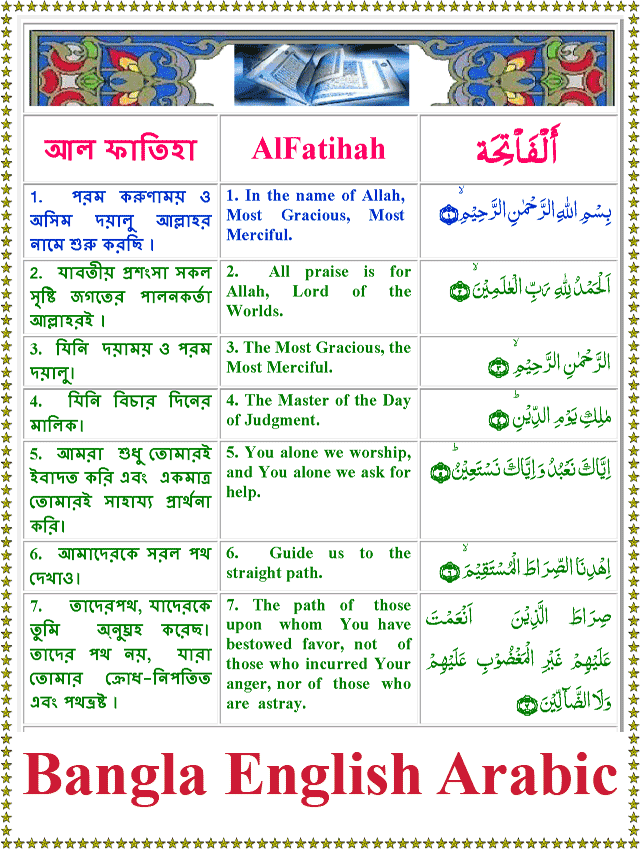 আল ফাতিহা
AlFatihah
أَلْفَاتِحَة
1. পরম করুণাময় ও
অসিম দয়ালু আল্লাহর
নামে শুরু করছি ।
1. In the name of Allah,
Most Gracious, Most
Merciful.
بِسْمِ اللهِ الرَّحْمٰنِ الرَّحِيْمِ ۙ‏﴿۱﴾
2. যাবতীয় প্রশংসা সকল
সৃষ্টি জগতের পালনকর্তা
আল্লাহরই ।
2. All praise is for
Allah, Lord of the
Worlds.
اَلْحَمْدُ لِلّٰهِ رَبِّ الْعٰلَمِيْنَ ۙ‏﴿۲﴾
3. যিনি দয়াময় ও পরম
দয়ালু।
3. The Most Gracious, the
Most Merciful.
الرَّحْمٰنِ الرَّحِيْمِ ۙ‏﴿۳﴾
4. যিনি বিচার দিনের
মালিক।
4. The Master of the Day
of Judgment.
مٰلِكِ يَوْمِ الدِّيْنِ ؕ‏﴿۴﴾
5. আমরা শুধু তোমারই
ইবাদত করি এবং একমাত্র
তোমারই সাহায্য প্রার্থনা
করি।
5. You alone we worship,
and You alone we ask for
help.
اِيَّاكَ نَعْبُدُ وَ اِيَّاكَ نَسْتَعِيْنُ ؕ‏﴿۵﴾
6. আমাদেরকে সরল পথ
দেখাও।
6. Guide us to the
straight path.
اِهْدِنَا الصِّرَاطَ الْمُسْتَقِيْمَ ۙ‏﴿۶﴾
7. তাদেরপথ, যাদেরকে
তুমি অনুগ্রহ করেছ।
তাদের পথ নয়, যারা
তোমার ক্রোধ-নিপতিত
এবং পথভ্রষ্ট ।
7. The path of those
upon whom You have
bestowed favor, not of
those who incurred Your
anger, nor of those who
are astray.
صِرَاطَ الَّذِيْنَ اَنْعَمْتَ
عَلَيْهِمْ غَيْرِ الْمَغْضُوْبِ عَلَيْهِمْ
وَلَا الضَّآلِّيْنَ ﴿۷﴾
Bangla English Arabic